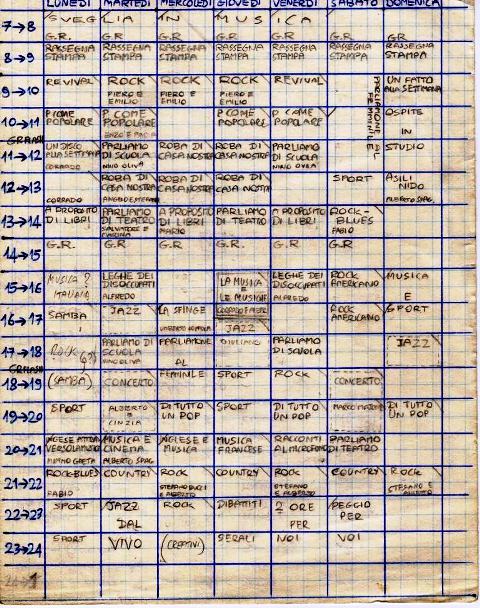 LUNEDI MARTEDI MERCOLEDI GIOVEDI VENERDI SABATO DOMENICA
7→8 SVEGLIA IN MUSICA
G.R. G.R G.R. G.R G.R. G.R. GR.
8→9 RASSEGNA STAMPA RASSEGNA STAMPA RASSEGNA STAMPA RASSEGNA STAMPA RASSEGNA STAMPA RASSEGNA STAMPA RASSEGNA STAMPA
9→10 REVIVAL ROCK PIERO E EMILIO ROCK PIERO E EMILIO ROCK PIERO E EMILIO REVIVAL PARLIAMONE AL FEMMINILE UN FATTO ALLA SETTIMANA
10→11 P COME POPOLARE P COME POPOLARE P COME POPOLARE P COME POPOLARE OSPITE IN
GR FLASH
11→12 UN DISCO ALLA SETTIMANA CORRADO PARLIAMO DI SCUOLA NINO OLIVA ROBA DI CASA NOSTRA ROBA DI CASA NOSTRA PARLIAMO DI SCUOLA NINO OLIVA STUDIO
12→13 CORRADO ROBA DI CASA NOSTRA ROBA DI CASA NOSTRA ROBA DI CASA NOSTRA SPORT ASILI NIDO ALBERTO SPAG.
13→14 A PROPOSITO DI LIBRI PARLIAMO DI TEATRO SALVATORE E A PROPOSITO DI LIBRI MARIO PARLIAMO DI TEATRO A PROPOSITO DI LIBRI ROCK-BLUES FABIO
14→15 G.R. G.R G.R. G.R. G.R. G.R
15→16 MUSICA ITALIANA ? LEGHE DEI DISOCCUPATI ALFREDO LA MUSICA E LE MUSICHE LEGHE DEI DISOCCUPATI ALFREDO ROCK AMERICANO MUSICA E
16→17 SAMBA JAZZ LA SFINGE JAZZ ROCK AMERICANO SPORT
17→18 ROCK PARLIAMO DI SCUOLA NINO OLIVA PARLIAMONE AL GIULIANO PARLIAMO DI SCUOLA JAZZ
GR FLASH
18→19 (SAMBA) CONCERTO FEMINILE SPORT ROCK CONCERTO
19→20 SPORT ALBERTO E CINZIA DI TUTTO UN POP SPORT DI TUTTO UN POP MARCO DI TUTTO UN POP
20→21 INGLESE MUSICA E CINEMA ALBERTO SPAG. INGLESE E MUSICA MUSICA FRANCESE RACCONTI AL MICROFONO PARLIAMO DI TEATRO
21→22 ROCKBLUES FABIO COUNTRY ROCK COUNTRY ROCK STEFANO E ALBERTO COUNTRY ROCK STEFANO E ALBERTO
22→23 SPORT JAZZ DAL ROCK DIBATTITI 2 ORE PER PEGGIO PER
23→24 SPORT VIVO (CREATIVI) SERALI VOI VOI
24→1